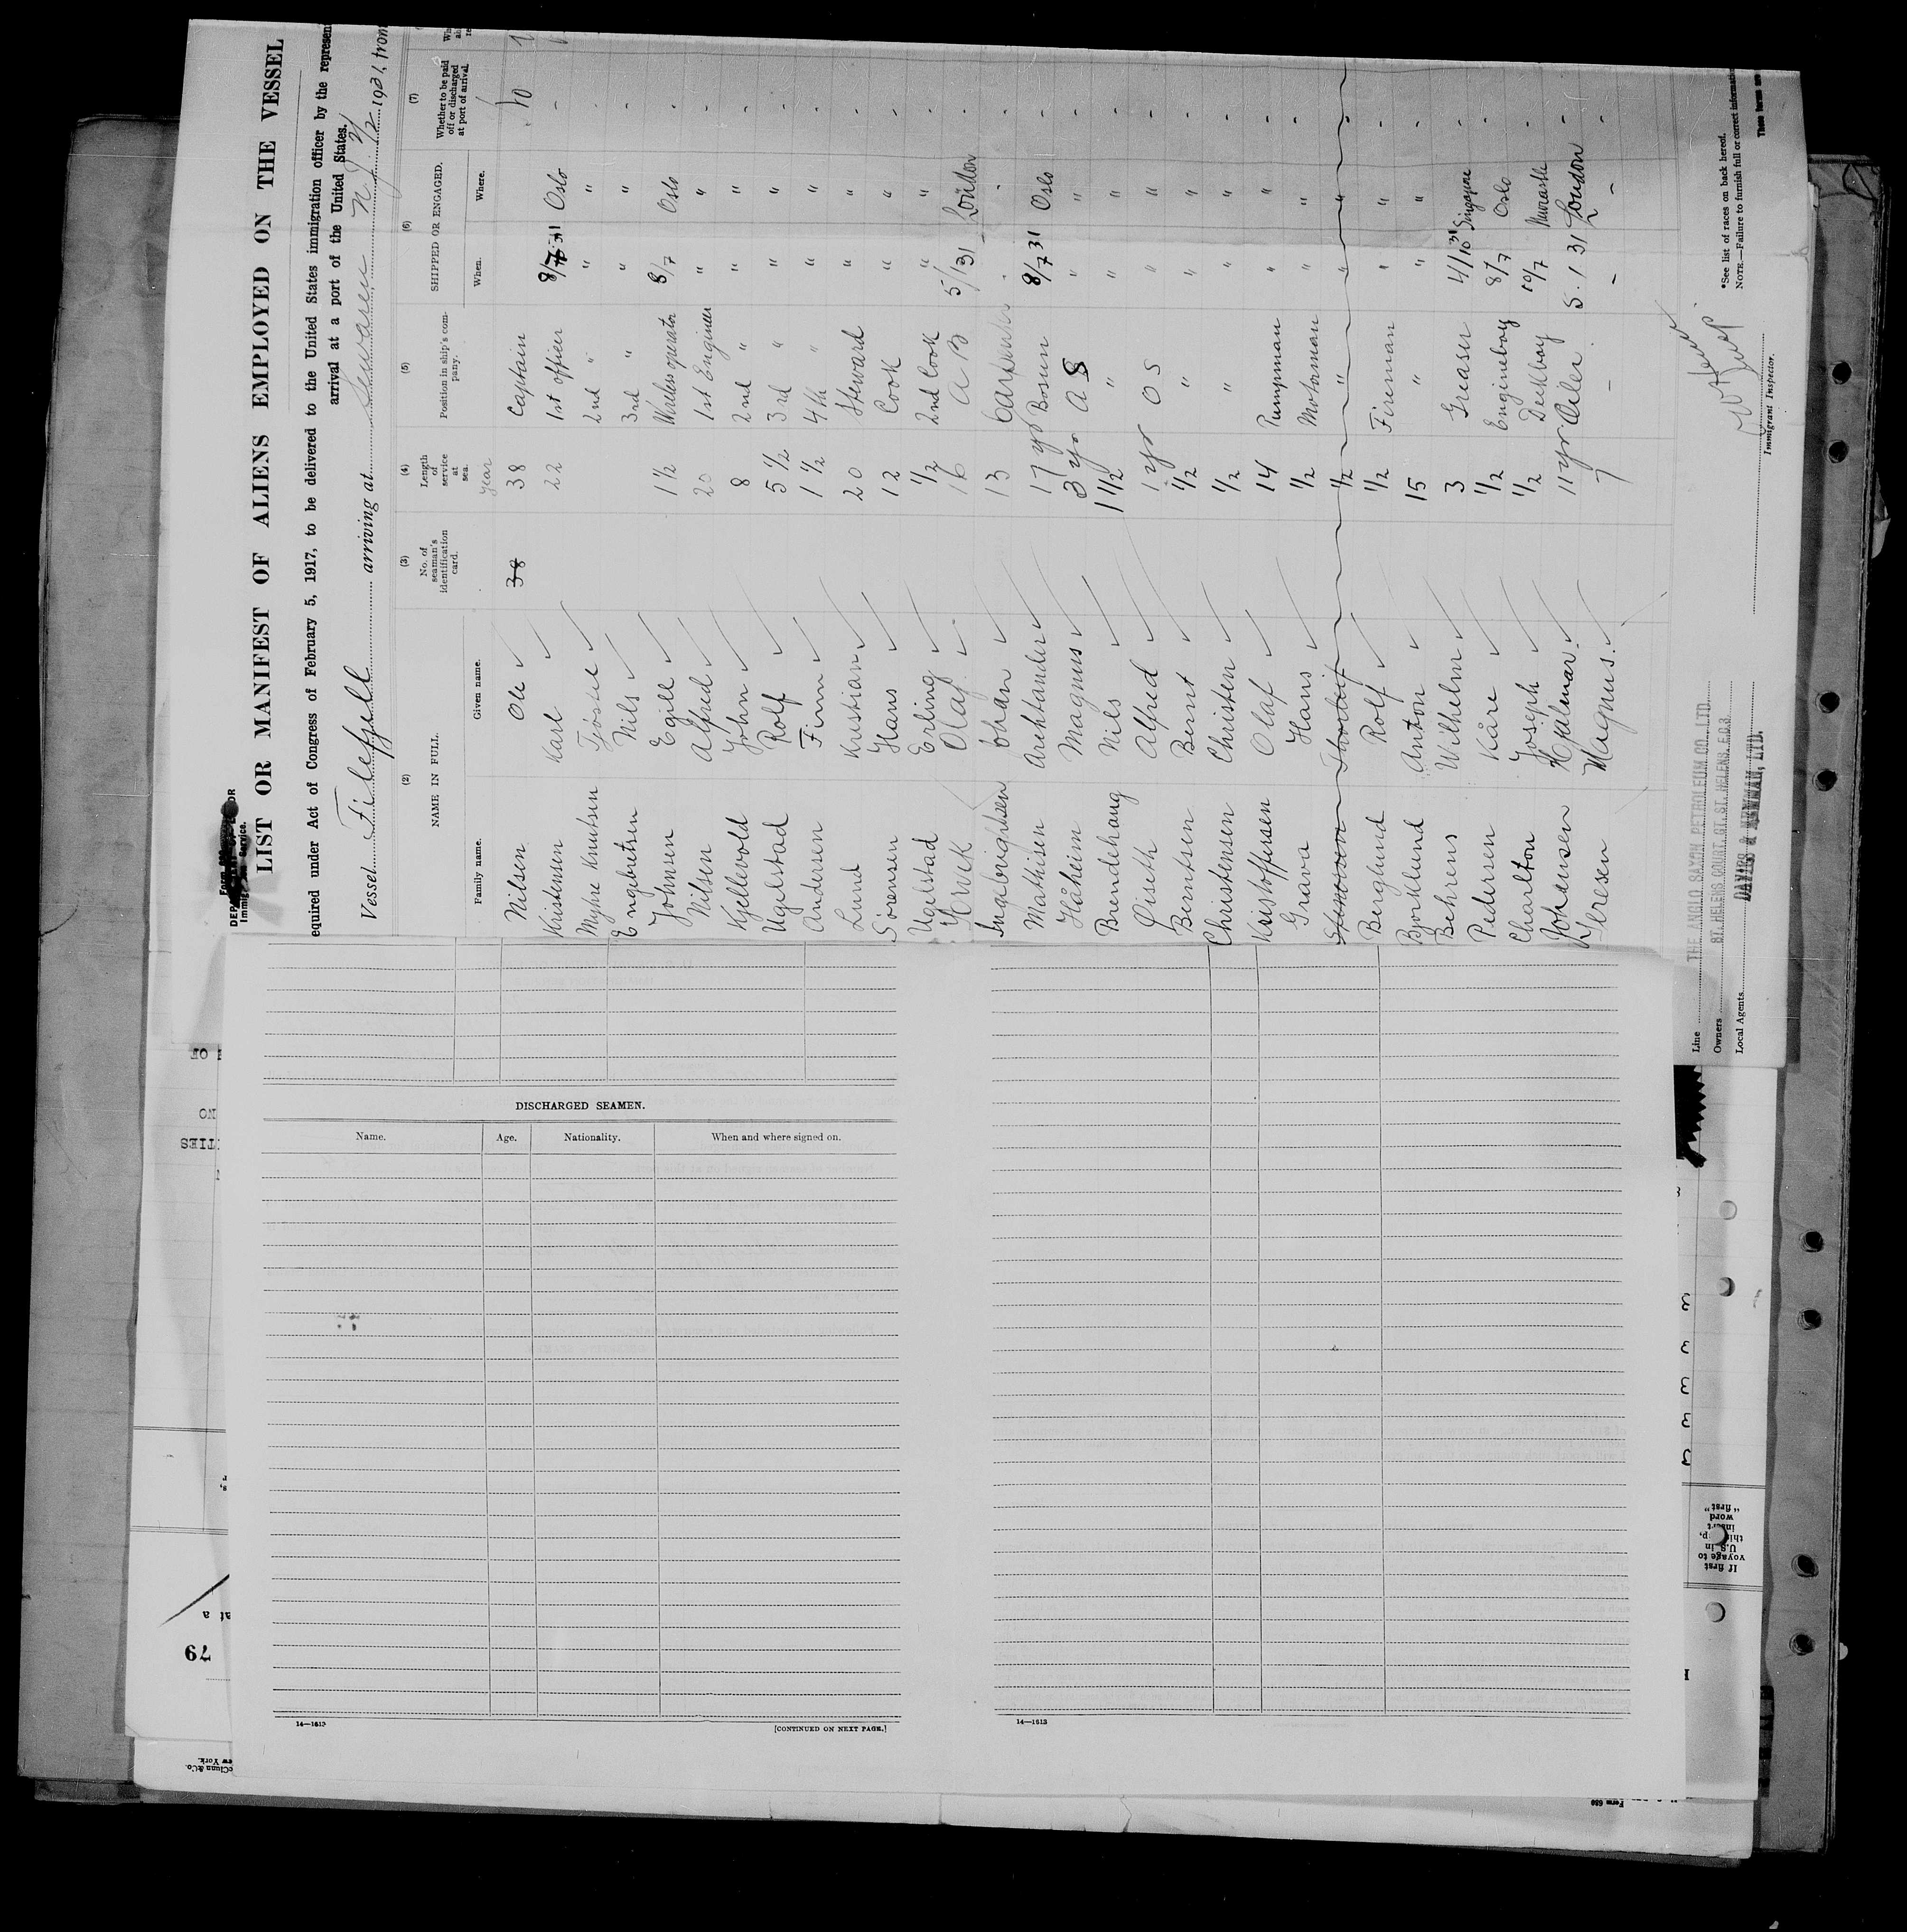 LIST OR MANIFEST OF ALIENS EMPLOYED ON THE VESSEL
equired under Act of Congress of February 5, 1917, to be delivered to the United States immigration officer by the represen
arrival at a port of the United States.
Vessel Filefjell arriving at Sewaren N.J.
(2) (3) (4) (5) (6) (7)
NAME IN FULL. No. of seaman's identification card. Length of service at sea. Position in ship's company. SHIPPED OR ENGAGED. Whether to be paid off or discharged at port of arrival.
Family name. Given name. When. Where.
year
Nilsen Ole 38 38 Captain 8/7 31 Oslo No
Kristensen Karl 22 1st officer " " -
Myhre Knutsen 2nd " " " -
Engebretsen Nils 3rd " " " -
Johnsen Egill 1 1/2 Wireless operator 8/7 Oslo -
Nilsen Alfred 20 1st Engineer " " -
Kjellevold John 8 2nd " " " -
Ugelstad Rolf 5 1/2 3rd " " " -
Andersen Finn 1 1/2 4th " " " -
Lund Kristian 20 Steward " " -
Sörensen Hans 12 Cook " " -
Ugelstad Erling 1/2 2nd Cook " " -
Olaf 16 A B 5/1 31 London -
Ingebrightsen Johan 13 Carpenter - - -
Mathisen 17 yr Bosun 8/7 31 Oslo -
Håheim Magnus 3 yr A S " " -
Brendehaug Nils 1 1/2 " " " -
Öiseth Alfred 1 yr O S " " -
Berntsen Bernt 1/2 " " " -
Christensen Christen 1/2 " " " -
Kristoffersen Olaf 14 Pumpman " " -
Grava Hans 1/2 Motorman " " -
Thorleif 1/2 " " " -
Berglund Rolf 1/2 Fireman " " -
Bjorklund Anton 15 " " " -
Behrens Wilhelm 3 Greaser 4/10 31 Singapore -
Pedersen Kåre 1/2 Engineboy 8/7 Oslo -
Charlton Joseph 1/2 Deckboy 10/7 Newcastle -
Johansen Hjalmar 11 yr Oiler 5. 1 31 London -
Magnus. 7 - - - -
Line THE ANGLO SAXON PETROLEUM CO., LTD.
Owners ST. HELENS COURT, GT. ST. HELENS, E.C.3.
Local Agents DAVIES & NEWMAN, LTD.
Immigrant Inspector.
*See list of races on back hereof.
NOTE.—Failure to furnish full or correct informatio
DISCHARGED SEAMEN.
Name. Age. Nationality. When and where signed on.
14—1613
[CONTINUED ON NEXT PAGE.]
14—1613
79
If first
voyage to
U.S. in
this
insert
word
"first"